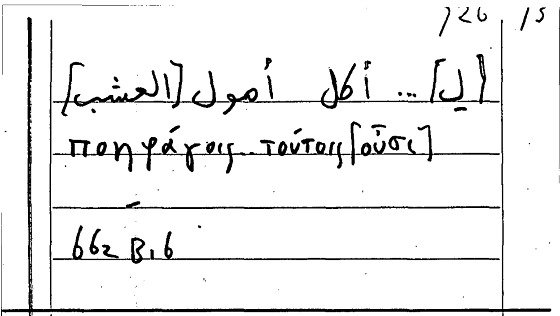 126, 15
[لِ] ... أكل أصول [العشب]
ποηφάγοις .. τούτοις [οὖσι]
662 B, 6